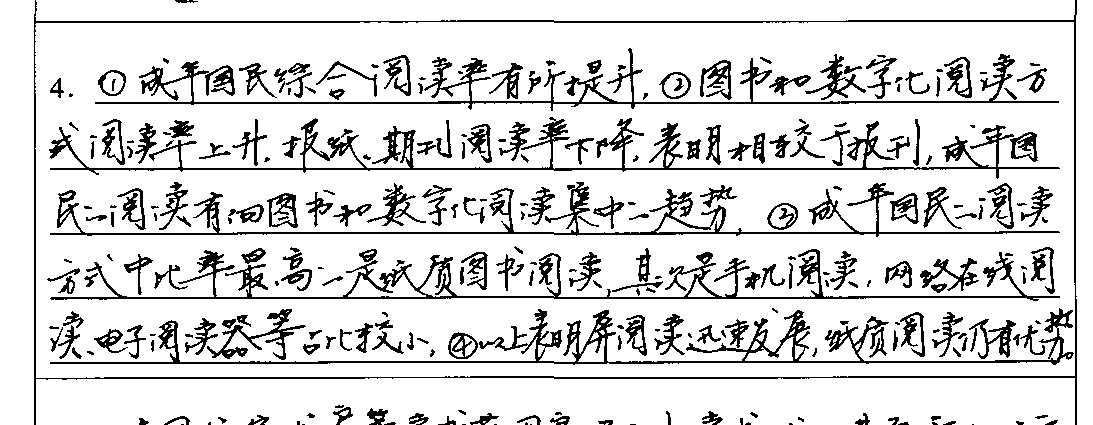 4. ①成年国民综合阅读率有所提升,②图书和数字化阅读方
式阅读率上升,报纸、期刊阅读率下降,表明相较于报刊,成年国
民的阅读有向图书和数字化阅读集中的趋势,③成年国民的阅读
方式中比率最高的是纸质图书阅读,其次是手机阅读,网络在线阅
读、电子阅读器等占比较小,④以上表明屏阅读迅速发展,纸质阅读仍有优势。